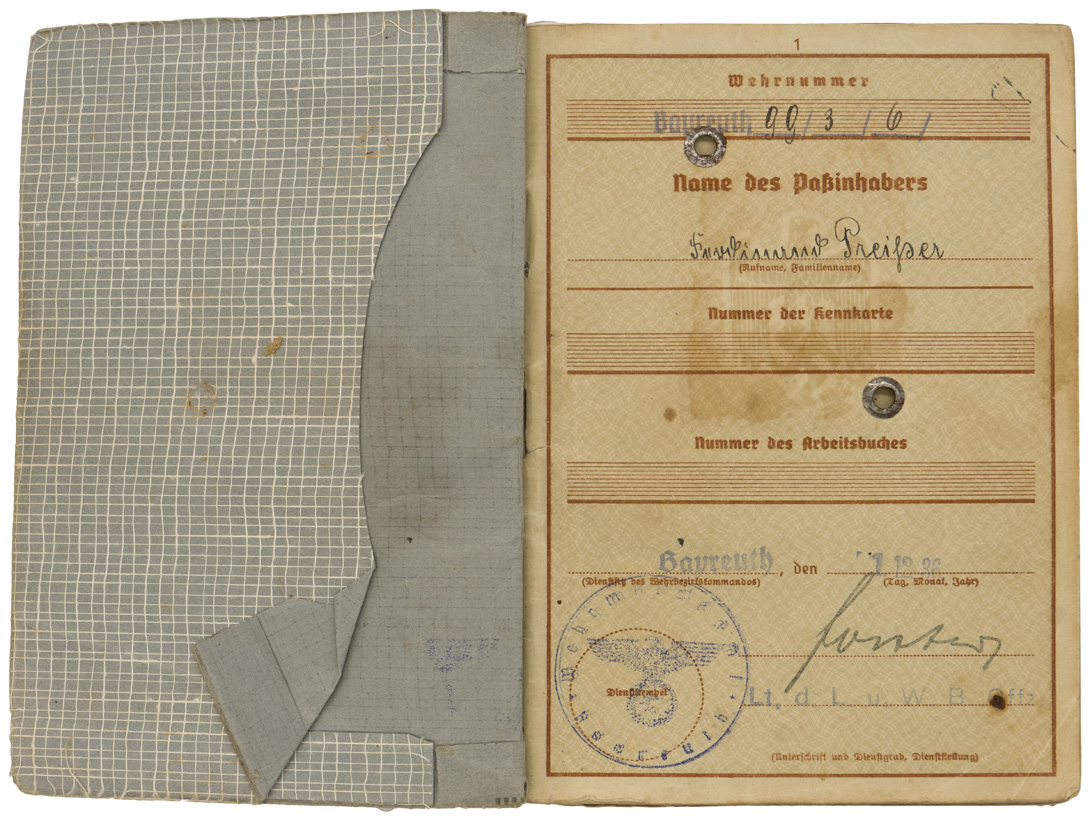 1
Wehrnummer
Bayreuth 99/3/6/
Name des Paßinhabers
Ferdinand Preißer
(Rufname, Familienname)
Nummer der Kennkarte
Nummer des Arbeitsbuches
Bayreuth, den 1 12 36
(Dienstsitz des Wehrbezirkskommandos) (Tag, Monat, Jahr)
Wehrmeldeamt
Bayreuth
Dienststempel
Lt. d. L. u. W. B. Offz
(Unterschrift und Dienstgrad, Dienststellung)